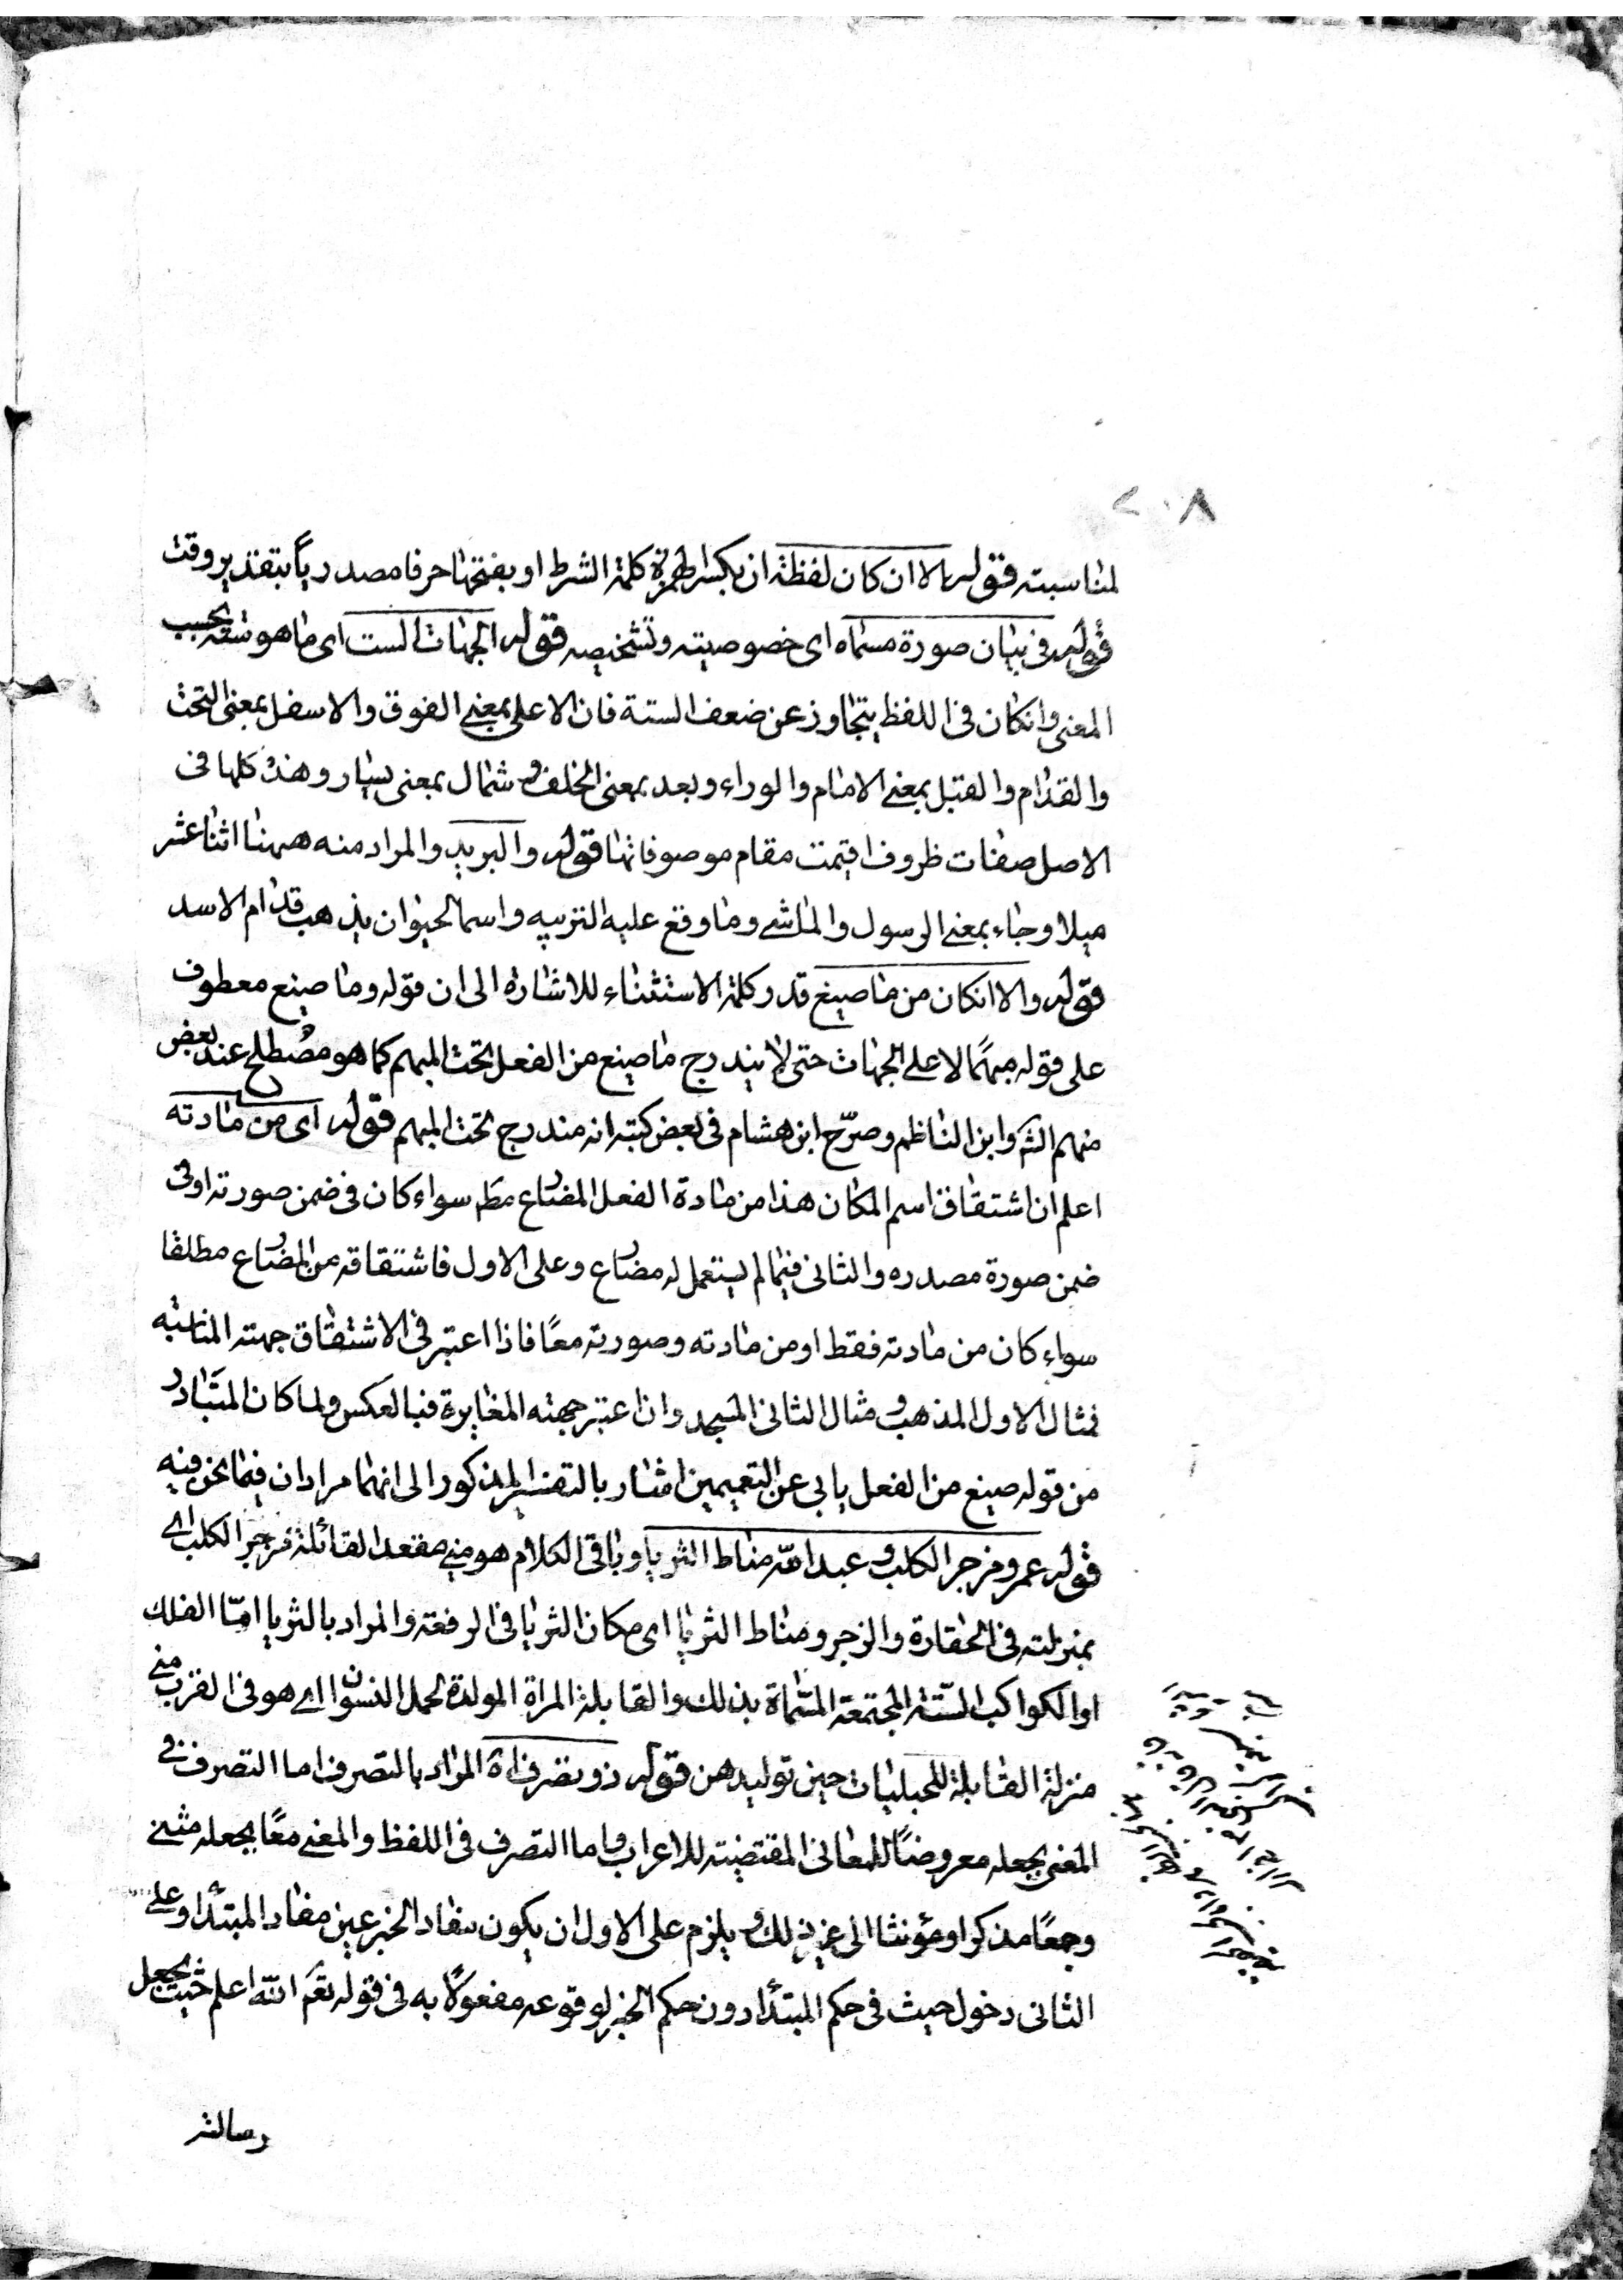 ٢٠٨
لمناسبته قوله الا ان كان لفظة ان بكسر الهمزة كلمة الشرط او بفتحها حرفا مصدريا بتقدير وقت
قوله في بيان صورة مسماه اى خصوصيته وتشخيصه قوله الجهات الست اى ما هو ستة بحسب
المعنى وانكان في اللفظ يتجاوز عن ضعف الستة فان الاعلى بمعنى الفوق والاسفل بمعنى التحت
والقدام والقبل بمعنى الامام والوراء وبعد بمعنى الخلف وشمال بمعنى يسار وهذه كلها في
الاصل صفات ظروف اقيمت مقام موصوفاتها قوله والبريد والمراد منه ههنا اثنا عشر
ميلا وجاء بمعنى الرسول والماشى وما وقع عليه الترتيبه واسم الحيوان يذهب قدام الاسد
قوله والا انكان من ما صيغ قدر كلمة الاستثناء للاشارة الى ان قوله وما صيغ معطوف
على قوله مبهما لا على الجهات حتى لا يندرج ما صيغ من الفعل تحت المبهم كما هو مصطلح عند بعض
منهم الش وابن الناظم وصرّح ابن هشام في بعض كتبه انه مندرج تحت المبهم قوله اى من مادته
اعلم ان اشتقاق اسم المكان هذا من مادة الفعل المضارع مط سواء كان في ضمن صورته او في
ضمن صورة مصدره والثاني فيما لم يستعمل له مضارع وعلى الاول فاشتقاقه من المضارع مطلقا
سواء كان من مادته فقط او من مادته وصورته معًا فاذا اعتبر في الاشتقاق جهته المناسبه
فمثال الاول المذهب ومثال الثاني المسجد وان اعتبر جهته المغايرة فبالعكس ولما كان المتبادر
من قوله صيغ من الفعل يابى عن التعميمين اشار بالتفسير المذكور الى انهما مرادان فيما نحن فيه
قوله عمرو مزجر الكلب وعبد الله مناط الثريا وباقى الكلام هو منى مقعد القابلة فمزجر الكلب اى
بمنزلته في الحقارة والزجر ومناط الثريا اى مكان الثريا في الرفعة والمراد بالثريا امّا الفلك
او الكواكب الستة المجتمعة المسماة بذلك والقابلة المراة المولدة لحمل النسوان اى هو في القرب منى
منزلة القابلة للحبليات حين توليدهن قوله ذو تصرف اه المراد بالتصرف اما التصرف في
المعنى بجعله معروضًا للمعانى المقتضية للاعراب واما التصرف في اللفظ والمعنى معًا بجعله مثنى
وجمعًا مذكرا ومؤنثا الى غير ذلك ويلزم على الاول ان يكون مفاد الخبر عين مفاد المبتدأ وعلى
الثاني دخول حيث في حكم المبتدأ دون حكم الخبر لوقوعه مفعولًا به في قوله تعم الله اعلم حيث يجعل
رسالته